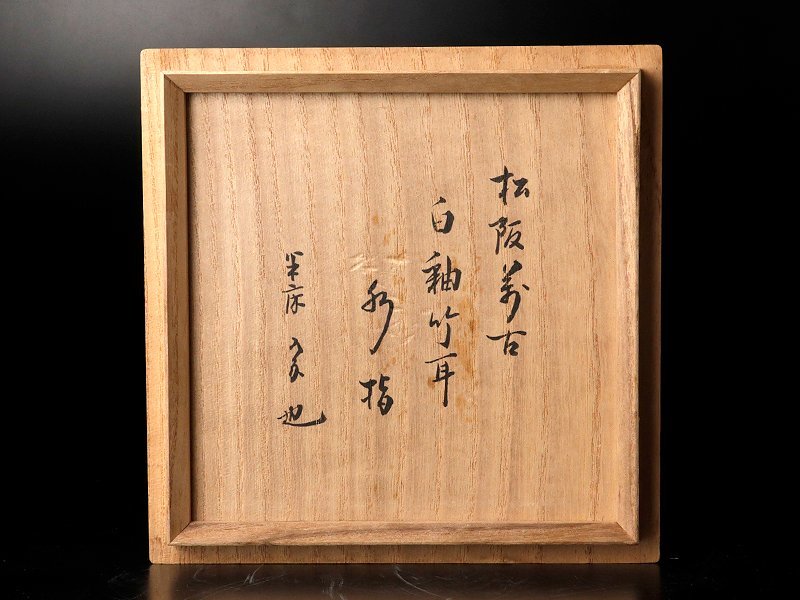 松阪萬古
白釉竹耳
水指
半床 宗也